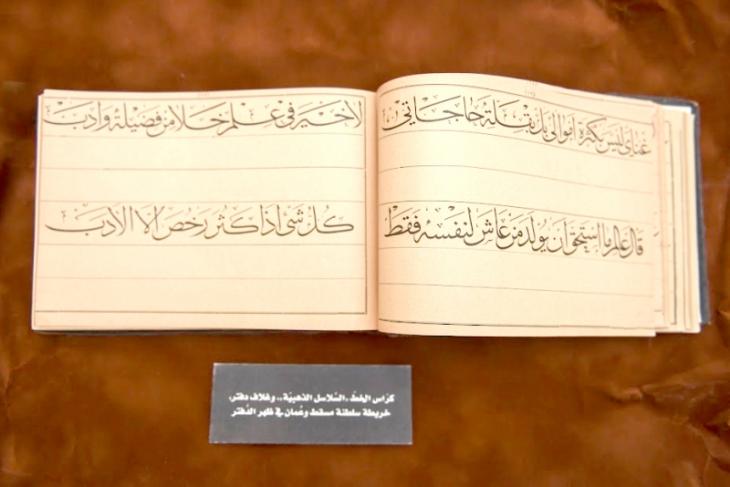 غناي ليس بكثرة اموالي بل بقلة حاجاتي
قال عالم ما استحق أن يولد من عاش لنفسه فقط
لا خير في علم خلا من فضيلة وادب
كل شئ اذا كثر رخص الا الادب
كرّاس الخطّ «السّلاسل الذهبيّة»، وغلاف دفتر،
خريطة سلطنة مسقط وعُمان في ظهر الدّفتر